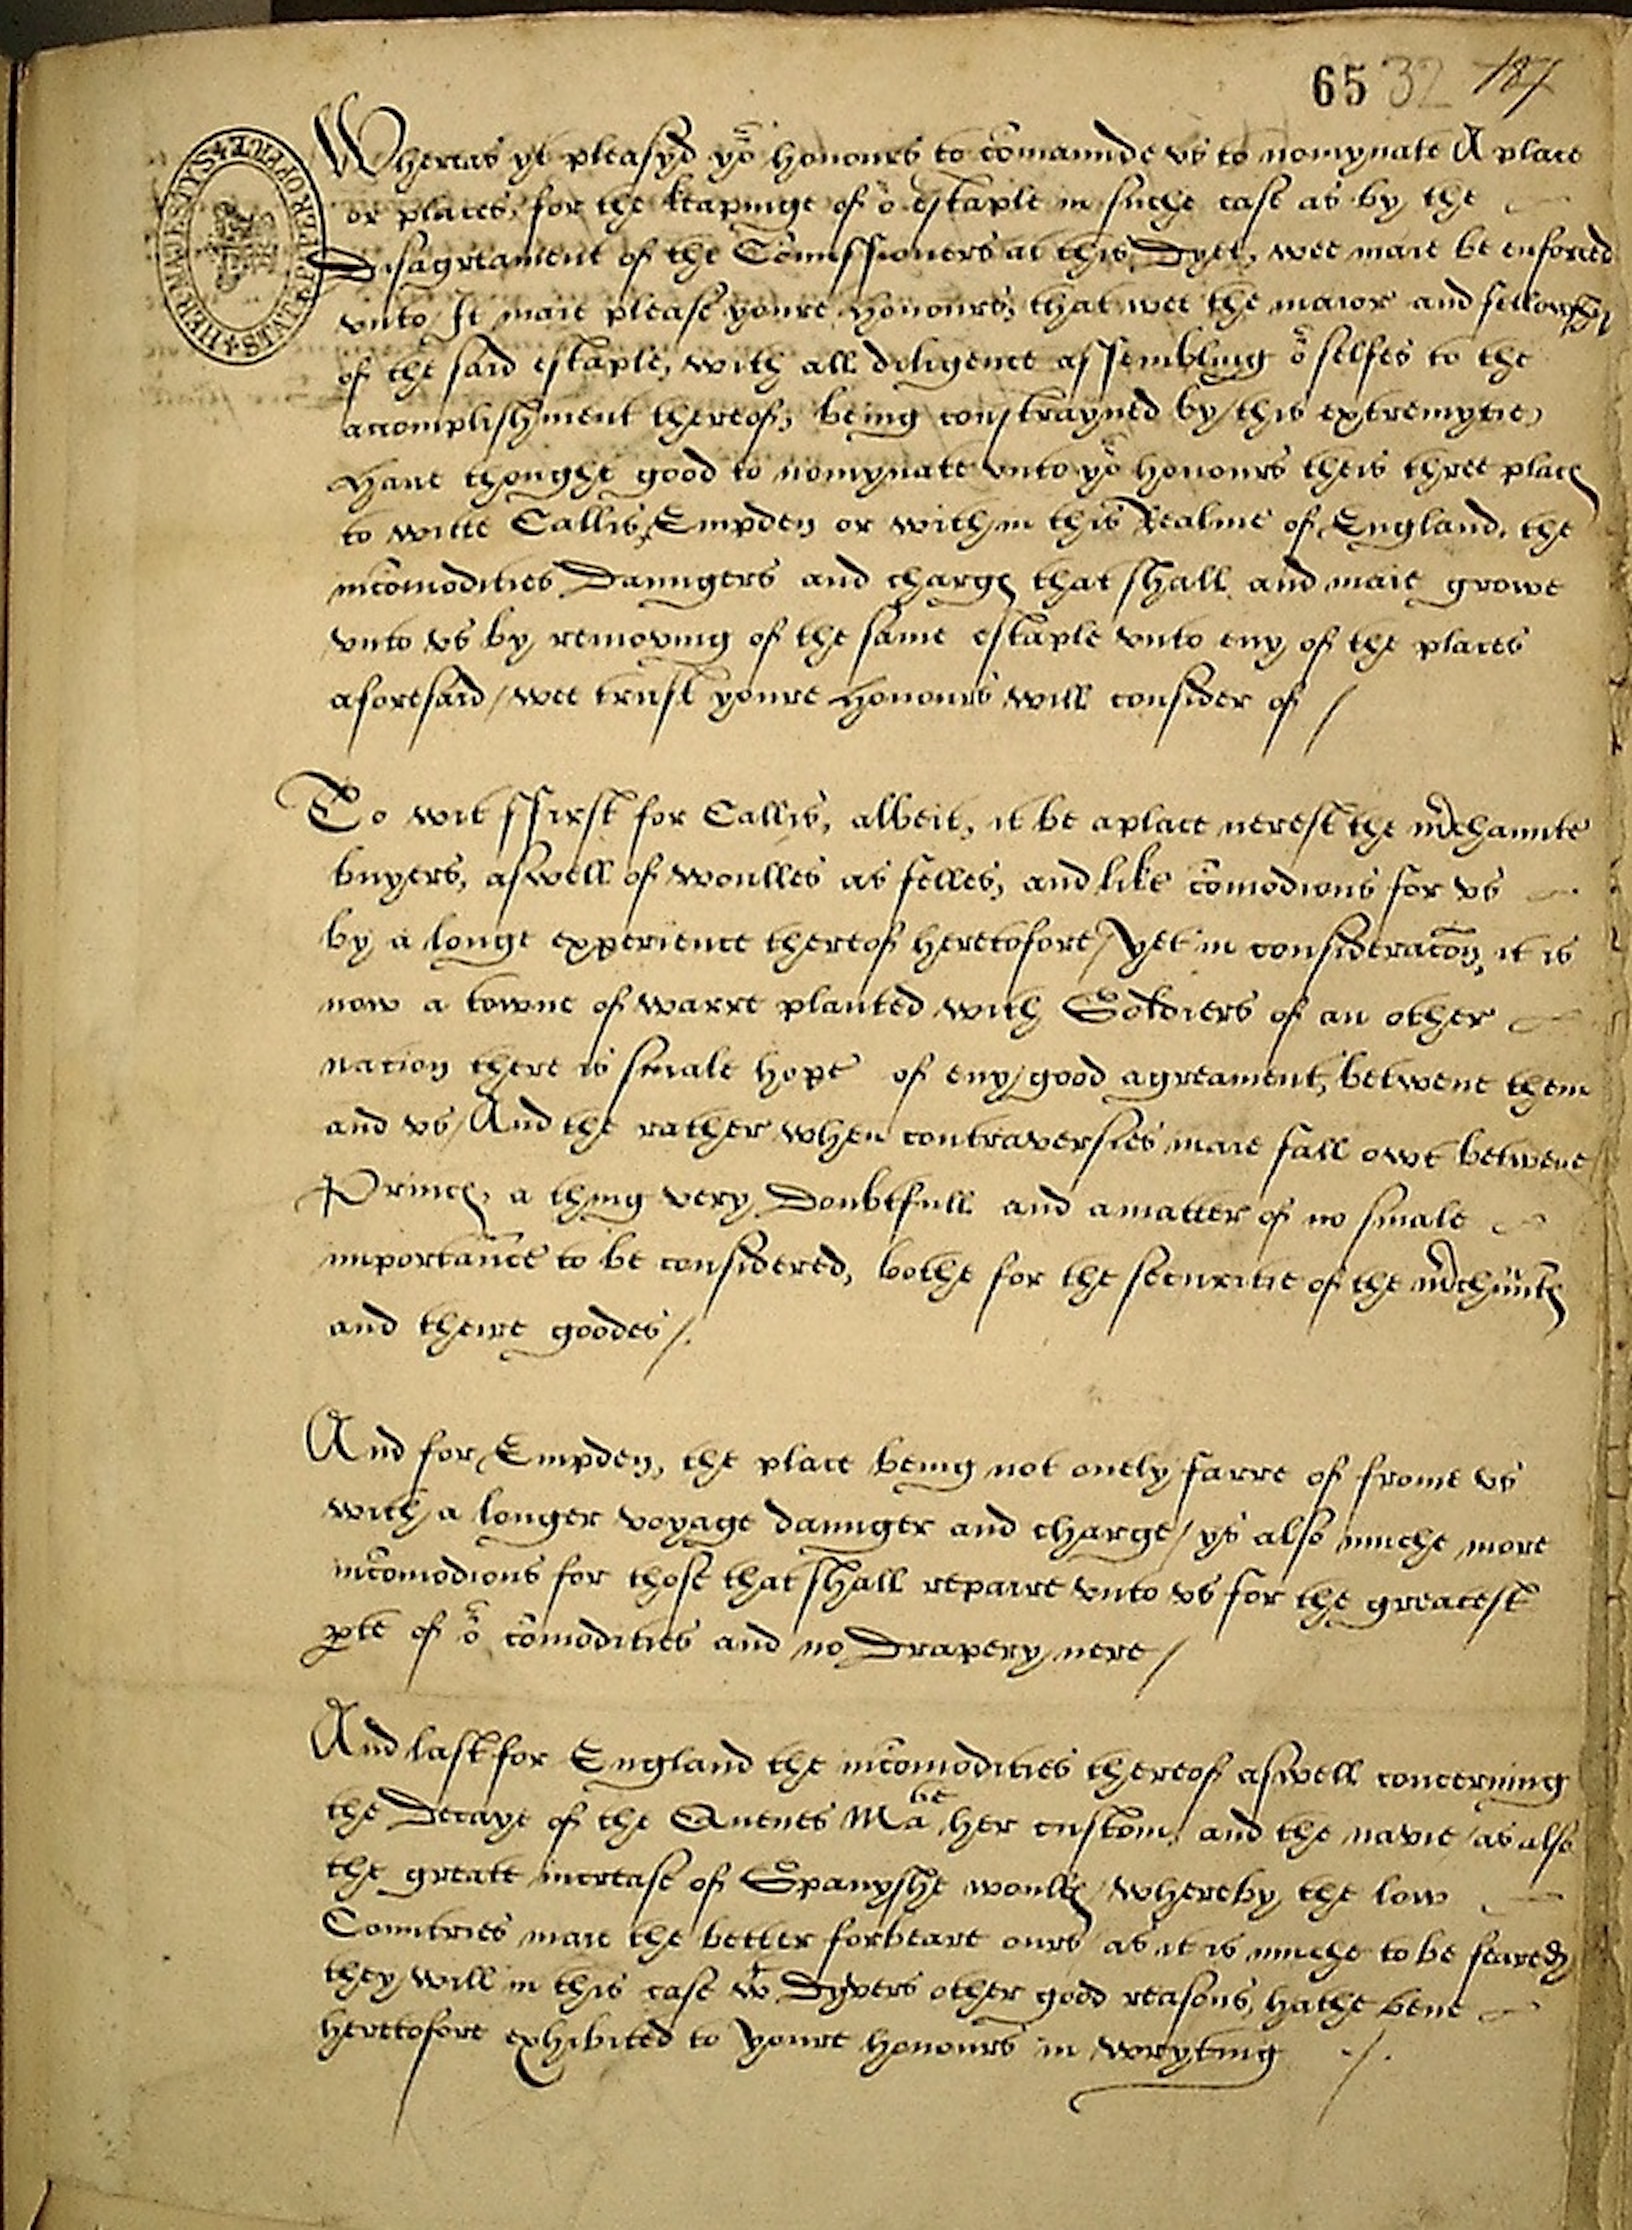 65 32 187
HER MAJESTYS STATE PAPER OFFICE
Wheras yt pleasyd yor honours to comaunde vs to nomynate A place
or places, for the keapinge of or estaple in suche case as by the
Disagreament of the Comissioners at this Dyet, wee maie be enforced
vnto / It maie please youre honours, that wee the maior and fellowshp
of the said estaple, with all diligence assembling or selfes to the
accomplishment therof, being constrayned by this extremytie,
Haue thought good to nomynate vnto yor honours theis three places
to witte Callis, Empden or within this Realme of England, the
incomodities Daungers and charges that shall and maie growe
vnto vs by removing of the same estaple vnto eny of the places
aforesaid / wee trust youre honours will consider of /
To wit ffirst for Callis, albeit, it be a place nerest the mrchaunte
buyers, aswell of woulles as felles, and like comodious for vs
by a longe experience thereof heretofore / yet in consideracon, it is
now a towne of warre planted with Soldiers of an other
nation there is smale hope of eny good agreament, betwene them
and vs / And the rather when contraversies maie fall owt betwene
Princes, a thing very Doubtfull and a matter of no smale
importance to be considered, bothe for the securitie of the mrchuntes
and theire goodes /.
And for Empden, the place being not onely farre of frome vs
with a longer voyage daunger and charge / ys also muche more
incomodious for those that shall repaire vnto vs for the greatest
pte of or comodities and no Drapery nere /
And last for England the incomodities thereof aswell concerning
the Decaye of the Quenes Matie her custom, and the navie / as also
the greate increase of Spanyshe woulles / whereby the low
Countries maie the better forbeare ours / as it is muche to be feared
they will in this case wt Dyvers other good reasons, hathe bene
heretofore exhibited to youre honours in wryting /.